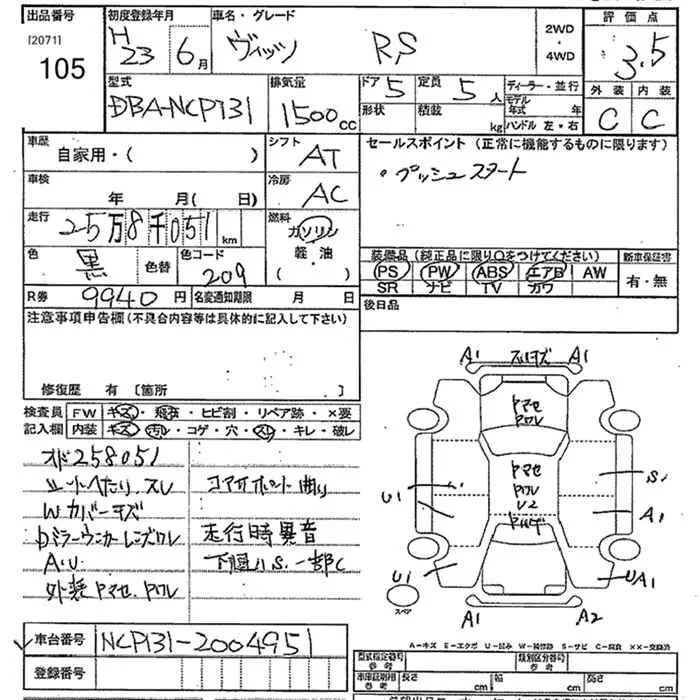 出品番号 初度登録年月 車名・グレード 評価点
[2071] H 23 6月 ヴィッツ RS 2WD・4WD 3.5
105
型式 排気量 ドア 5 定員 5人 ディーラー・並行 外装 内装
DBA-NCP131 1500cc 形状 積載 kg モデル年式 年 C C
ハンドル 左・右
車歴 シフト セールスポイント (正常に機能するものに限ります)
自家用・( ) AT ・プッシュスタート
車検 冷房
年 月( 日) AC
走行 燃料
25万8千051km ガソリン・軽・油 ( )
色 色コード 装備品 (純正品に限り○をつけてください) 新車保証書
黒 色替 209 PS PW ABS エアB AW 有・無
SR ナビ TV カワ
R券 9940円 名変通知期限 月 日 後日品
注意事項申告欄(不具合内容等は具体的に記入して下さい)
修復歴 有 [箇所 ]
検査員 FW キズ・飛石・ヒビ割・リペア跡・×要
記入欄 内装 キズ・汚レ・コゲ・穴・スレ・キレ・破レ
258051
シートへたり、スレ コアサポート曲り
Wカバーキズ
ミラーウィンカーレンズワレ 走行時異音
A.U. 下廻りS.一部C
外装ヤマセ、ヤワレ
A1 スリキズ A1
ヤマセ
ヤワレ
ヤマセ
ヤワレ
U2
U1 S1
A1
U1 UA1
スペア A1 A2
A-キズ E-エクボ U-凹み W-補修跡 S-サビ C-腐食 XX-交換済
車台番号 NCP131-2004951
登録番号
型式指定番号 参考 類別区分番号 参考
車庫証明用 参考 長さ cm 幅 cm 高さ cm